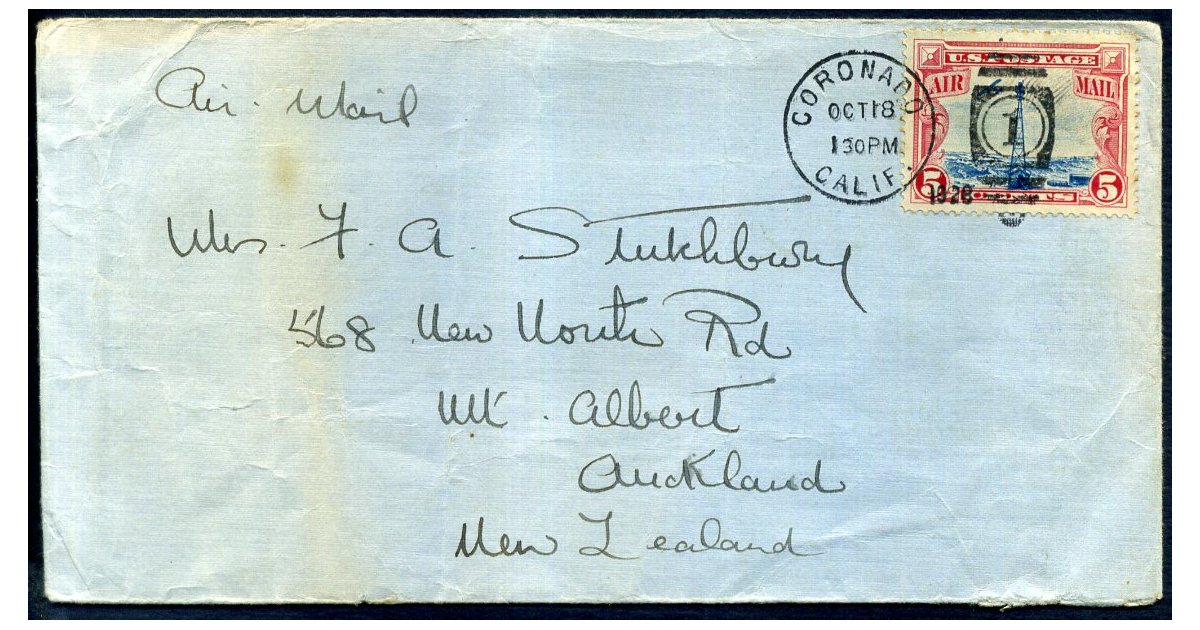 Air. Mail
CORONADO
OCT 18
1 30 PM
CALIF.
1928
U.S. POSTAGE
AIR MAIL
1
5 CENTS 5
Mrs. F. A. Stukhbury
568 New North Rd
Mt. Albert
Auckland
New Zealand